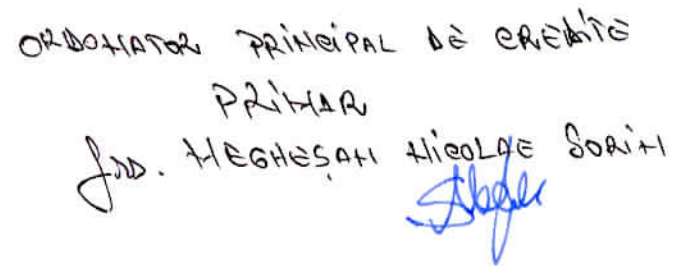 ORDONATOR PRINCIPAL DE CREDITE
PRIMAR
JRD. NEGHEȘAN NICOLAE SORIN